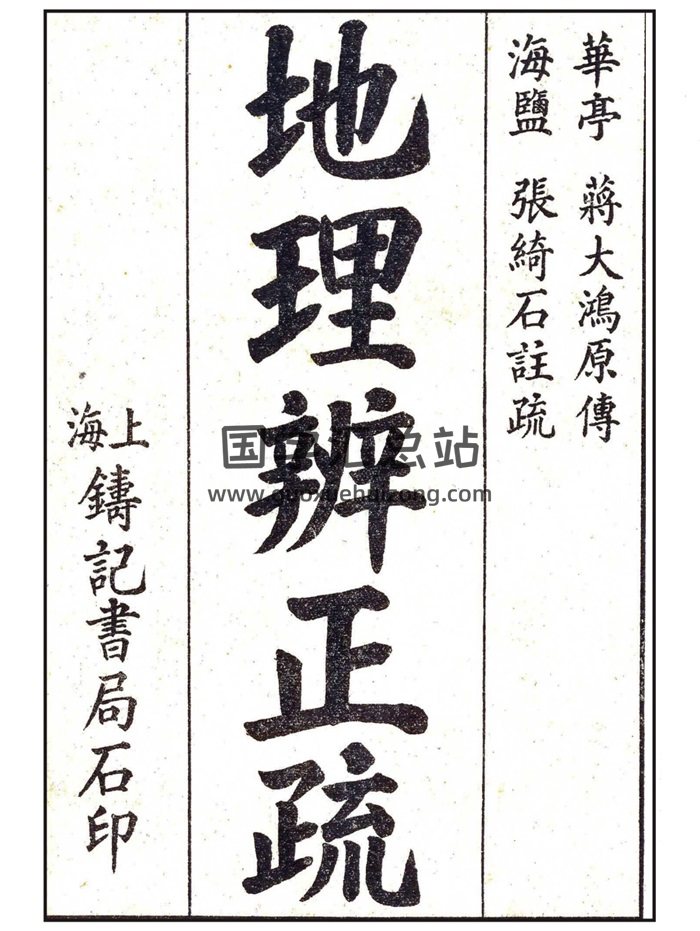 華亭 蔣大鴻原傳
海鹽 張綺石註疏
地理辨正疏
上海鑄記書局石印
国学汇总站
www.guoxuehuizong.com